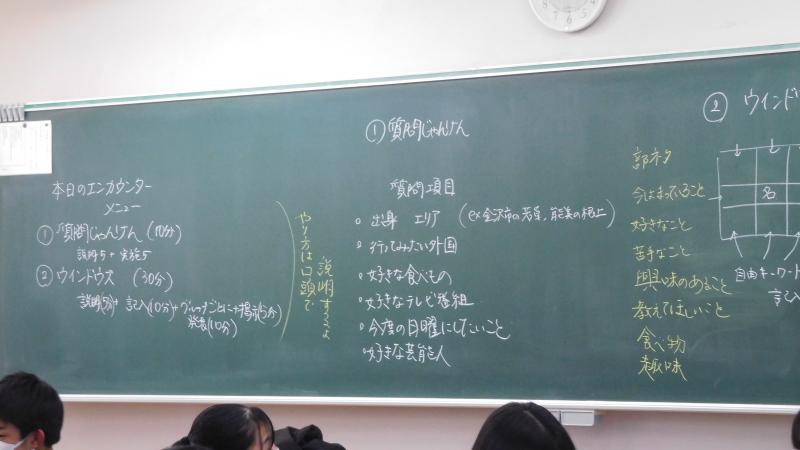 本日のエンカウンター
メニュー
① 質問じゃんけん (10分)
説明5 + 実施5
② ウインドウズ (30分)
説明(5分)+ 記入(10分)+グループごとに+掲示(5分)
発表(10分)
やり方は口頭で
説明するよ
① 質問じゃんけん
質問項目
出身 エリア (ex金沢市の
行ってみたい外国
好きな食べもの
好きなテレビ番組
今度の日曜にしたいこと
好きな芸能人
② ウインド
部ネタ
今はまっていること
好きなこと
苦手なこと
興味のあること
教えてほしいこと
食べ物
趣味
名
自由キーワード
記入